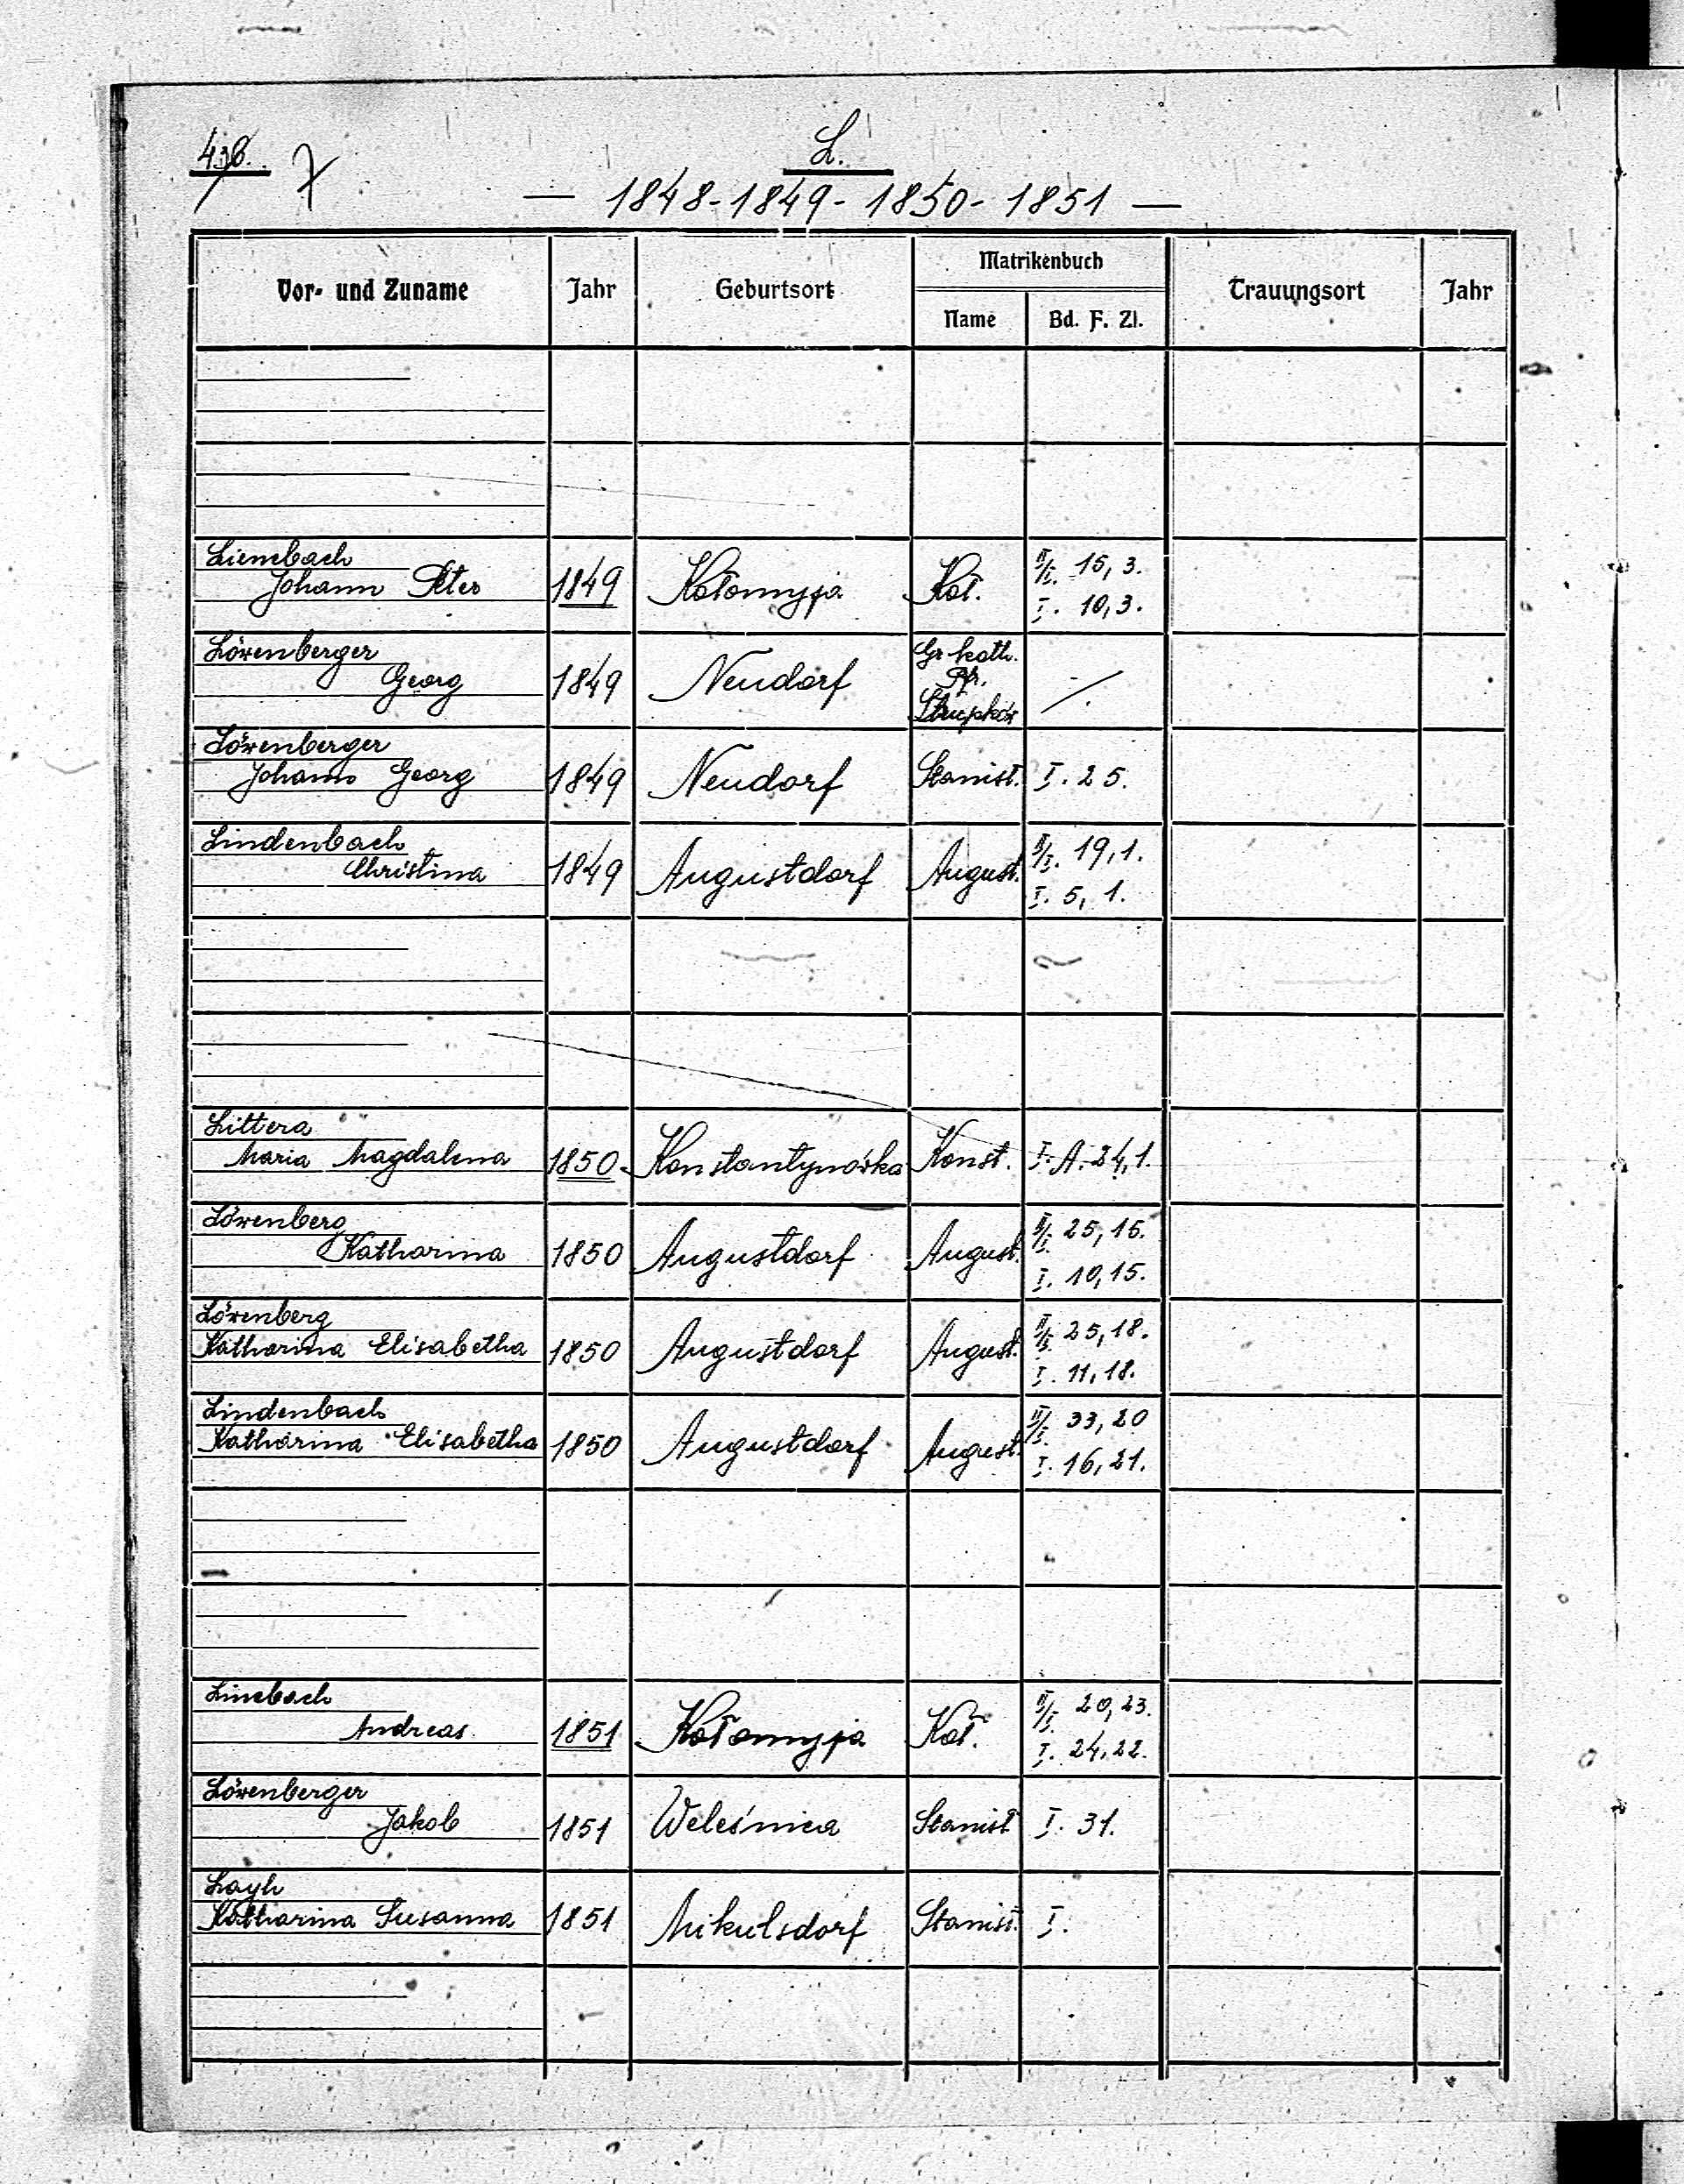 L.
— 1848-1849-1850-1851 —
Vor- und Zuname Jahr Geburtsort Matrikenbuch Trauungsort Jahr
Name Bd. F. Zl.
Lienbach
Johann Peter 1849 Kołomyja Koł. II/I. 15, 3.
I. 10, 3.
Löwenberger
Georg 1849 Neudorf Gr. kath. Pfr. Strupków /.
Löwenberger
Johann Georg 1849 Neudorf Stanisł. I. 25.
Lindenbach
Christina 1849 Augustdorf August. II/I. 19, 1.
I. 5, 1.
Littera
Maria Magdalena 1850 Konstantynówka Konst. I. A. 24, 1.
Löwenberg
Katharina 1850 Augustdorf August. II/I. 25, 15.
I. 10, 15.
Löwenberg
Katharina Elisabetha 1850 Augustdorf August. II/I. 25, 18.
I. 11, 18.
Lindenbach
Katharina Elisabetha 1850 Augustdorf August. II/I. 33, 20
I. 16, 21.
Linebach
Andreas. 1851 Kołomyja Koł. II/I. 20, 23.
I. 24, 22.
Löwenberger
Jakob 1851 Weleśnica Stanisł I. 31.
Layh
Katharina Susanna 1851 Mikulsdorf Stanisł. I.